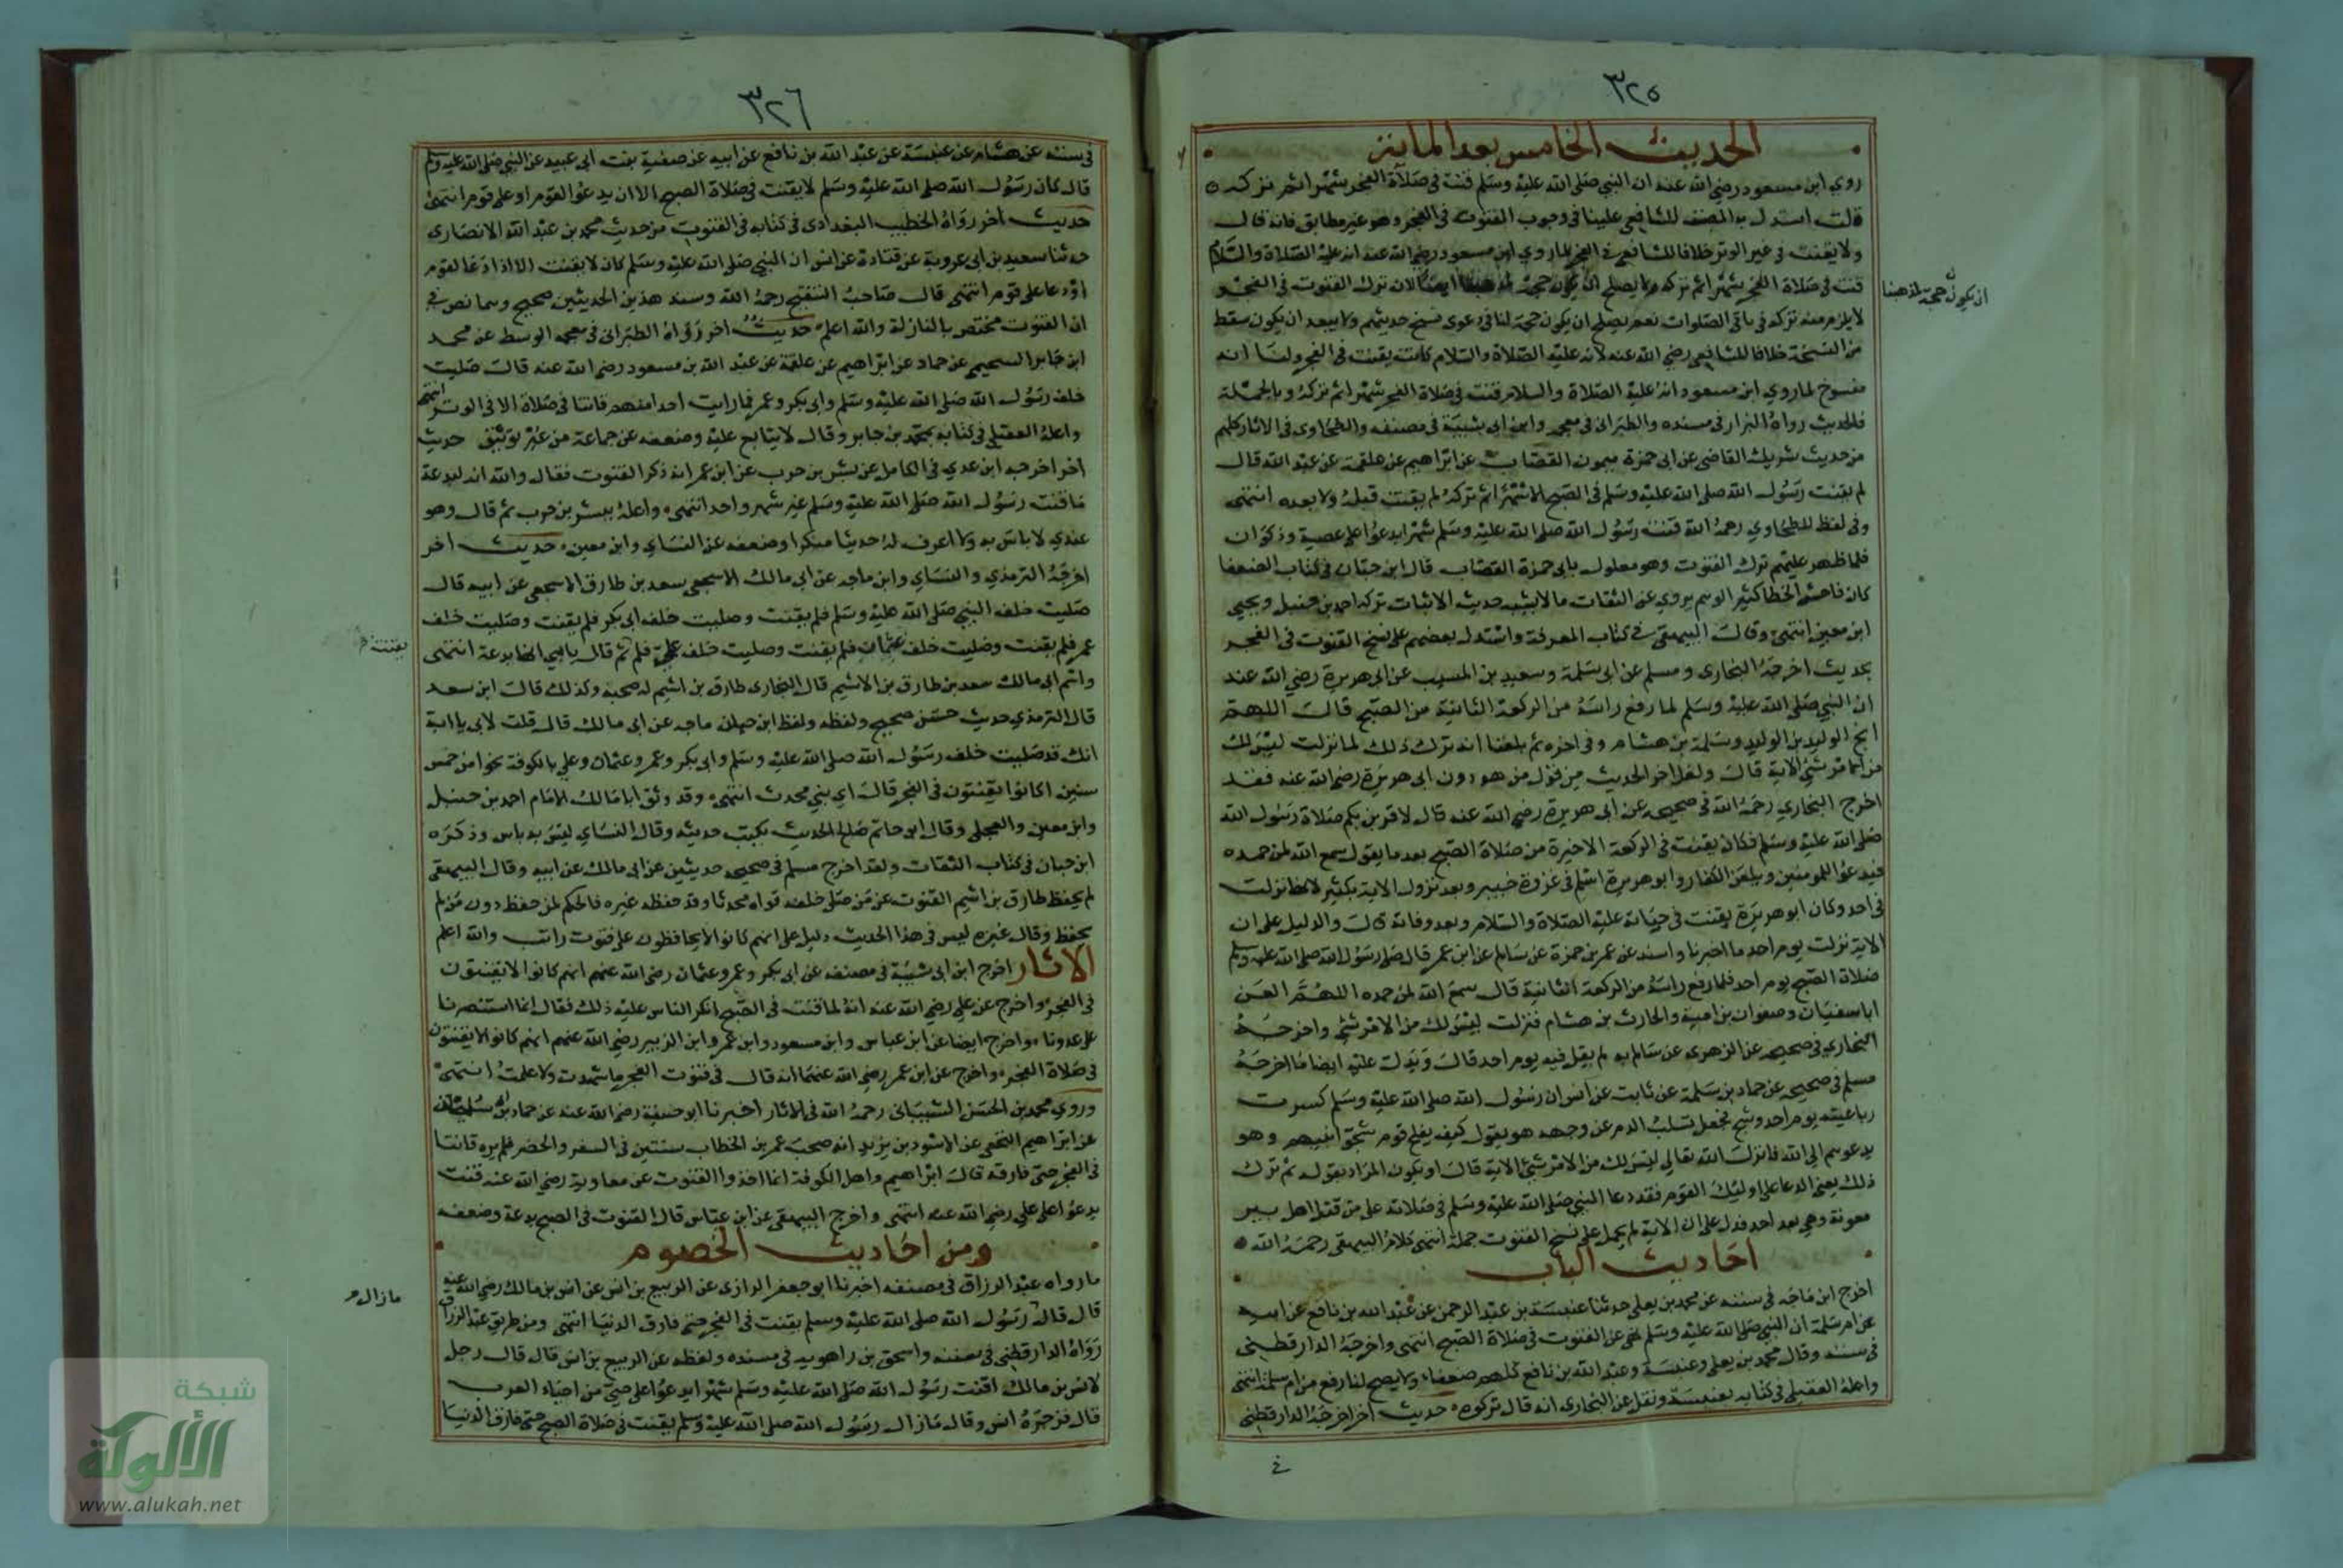 ٣٢٥
الحديث الخامس بعد الماية
روي ابن مسعود رضي الله عنه ان النبي صلى الله عليه وسلم قنت في صلاة الفجر شهرا ثم تركه
قلت استدل به المصنف للشافعي علينا في وجوب القنوت في الفجر وهو غير مطابق فانه قال
ولا يقنت في غير الوتر خلافا للشافعي في الفجر لما روي ابن مسعود رضي الله عنه انه عليه الصلاة والسلام
قنت في صلاة الفجر شهرا ثم تركه ولا يصلح ان يكون حجة لمذهبنا ايضا لان ترك القنوت في الفجر
ان يكون حجة لمذهبنا
لا يلزم منه تركه في باقي الصلوات نعم يصلح ان يكون حجة لنا في دعوى نسخ حديثهم ولا يبعد ان يكون سقط
من النسخة خلافا للشافعي رضي الله عنه لانه عليه الصلاة والسلام كانت يقنت في الفجر ولنا انه
منسوخ لما روي ابن مسعود انه عليه الصلاة والسلام قنت في صلاة الفجر شهرا ثم تركه وبالجملة
فالحديث رواه البزار في مسنده والطبراني في معجمه وابن ابي شيبة في مصنفه والطحاوي في الاثار كلهم
من حديث شريك القاضي عن ابي حمزة ميمون القصاب عن ابراهيم عن علقمة عن عبد الله قال
لم يقنت رسول الله صلى الله عليه وسلم في الصبح الا شهرا ثم تركه لم يقنت قبله ولا بعده انتهى
وفي لفظ للطحاوي رحمه الله قنت رسول الله صلى الله عليه وسلم شهرا يدعوا على عصية وذكوان
فلما ظهر عليهم ترك القنوت وهو معلول بابي حمزة القصاب قال ابن حبان في كتاب الضعفا
كان فاحش الخطا كثير الوهم يروي عن الثقات ما لا يشبه حديث الاثبات تركه احمد بن حنبل ويحيى
ابن معين انتهى وقال البيهقي في كتاب المعرفة واستدل بعضهم على نسخ القنوت في الفجر
بحديث اخرجه البخاري ومسلم عن ابي سلمة وسعيد بن المسيب عن ابي هريرة رضي الله عنه
ان النبي صلى الله عليه وسلم لما رفع راسه من الركعة الثانية من الصبح قال اللهم
انج الوليد بن الوليد وسلمة بن هشام وفي اخره ثم بلغنا انه ترك ذلك لما نزلت ليس لك
من الامر شئ الاية قال ولعل اخر الحديث من قول من هو دون ابي هريرة رضي الله عنه فقد
اخرج البخاري رحمه الله في صحيحه عن ابي هريرة رضي الله عنه قال لاقربن بكم صلاة رسول الله
صلى الله عليه وسلم فكان يقنت في الركعة الاخيرة من صلاة الصبح بعد ما يقول سمع الله لمن حمده
فيدعوا للمومنين ويلعن الكفار وابو هريرة اسلم في غزوة خيبر وبعد نزول الاية بكثير لانها نزلت
في احد وكان ابو هريرة يقنت في حياته عليه الصلاة والسلام وبعد وفاته قال والدليل على ان
الاية نزلت يوم احد ما اخبرنا واسند عن عمر بن حمزة عن سالم عن ابن عمر قال صلى رسول الله صلى الله عليه وسلم
صلاة الصبح يوم احد فلما رفع راسه من الركعة الثانية قال سمع الله لمن حمده اللهم العن
ابا سفيان وصفوان بن امية والحارث بن هشام فنزلت ليس لك من الامر شئ واخرجه
البخاري في صحيحه عن الزهري عن سالم به لم يقل فيه يوم احد قال ويدل عليه ايضا ما اخرجه
مسلم في صحيحه عن حماد بن سلمة عن ثابت عن انس ان رسول الله صلى الله عليه وسلم كسرت
رباعيته يوم احد وشج فجعل يسلت الدم عن وجهه هو يقول كيف يفلح قوم شجوا نبيهم وهو
يدعوهم الى الله فانزل الله تعالى ليس لك من الامر شئ الاية قال او يكون المراد بقوله ثم ترك
ذلك يعني الدعا على اوليك القوم فقد دعا النبي صلى الله عليه وسلم في صلاته على من قتل اهل بير
معونة وهي بعد احد فدل على ان الاية لم يحمل على نسخ القنوت جملة انتهى كلام البيهقي رحمه الله
احاديث الباب
اخرج ابن ماجه في سننه عن محمد بن يعلى حدثنا عنبسة بن عبد الرحمن عن عبد الله بن نافع عن ابيه
عن ام سلمة ان النبي صلى الله عليه وسلم نهى عن القنوت في صلاة الصبح انتهى واخرجه الدارقطني
في سننه وقال محمد بن يعلى وعنبسة وعبد الله بن نافع كلهم ضعفاء ولا يصح لنافع من ام سلمة انتهى
واعله العقيلي في كتابه بعنبسة ونقل عن البخاري انه قال تركوه حديث اخر اخرجه الدارقطني
في
٣٢٦
في سننه عن هشام عن عنبسة عن عبد الله بن نافع عن ابيه عن صفية بنت ابي عبيد عن النبي صلى الله عليه وسلم
قال كان رسول الله صلى الله عليه وسلم لا يقنت في صلاة الصبح الا ان يدعوا لقوم او على قوم انتهى
حديث اخر رواه الخطيب البغدادي في كتابه في القنوت من حديث محمد بن عبد الله الانصاري
حدثنا سعيد بن ابي عروبة عن قتادة عن انس ان النبي صلى الله عليه وسلم كان لا يقنت الا اذا دعا لقوم
او دعا على قوم انتهى قال صاحب التنقيح رحمه الله وسند هذين الحديثين صحيح وهما نص في
ان القنوت مختص بالنازلة والله اعلم حديث اخر رواه الطبراني في معجمه الوسط عن محمد
ابن جابر السحيمي عن حماد عن ابراهيم عن علقمة عن عبد الله بن مسعود رضي الله عنه قال صليت
خلف رسول الله صلى الله عليه وسلم وابي بكر وعمر فما رايت احدا منهم قانتا في صلاة الا في الوتر انتهى
واعله العقيلي في كتابه بمحمد بن جابر وقال لا يتابع عليه وضعفه عن جماعة من غير توثيق حديث
اخر اخرجه ابن عدي في الكامل عن بشر بن حرب عن ابن عمر انه ذكر القنوت فقال والله انه لبدعة
ما قنت رسول الله صلى الله عليه وسلم غير شهر واحد انتهى واعله ببشر بن حرب ثم قال وهو
عندي لا باس به ولا اعرف له حديثا منكرا وضعفه عن النساي وابن معين حديث اخر
اخرجه الترمذي والنساي وابن ماجه عن ابي مالك الاشجعي سعد بن طارق الاشجعي عن ابيه قال
صليت خلف النبي صلى الله عليه وسلم فلم يقنت وصليت خلف ابي بكر فلم يقنت وصليت خلف
عمر فلم يقنت وصليت خلف عثمان فلم يقنت وصليت خلف علي فلم ثم قال يا بني انها بدعة انتهى
يقنت
واسم ابي مالك سعد بن طارق بن الاشيم قال البخاري طارق بن اشيم له صحبة وكذلك قال ابن سعد
قال الترمذي حديث حسن صحيح ولفظه ولفظ ابن ماجه عن ابي مالك قال قلت لابي يا ابة
انك قد صليت خلف رسول الله صلى الله عليه وسلم وابي بكر وعمر وعثمان وعلي بالكوفة نحوا من خمس
سنين اكانوا يقنتون في الفجر قال اي بني محدث انتهى وقد وثق ابا مالك الامام احمد بن حنبل
وابن معين والعجلي وقال ابو حاتم صالح الحديث يكتب حديثه وقال النساي ليس به باس وذكره
ابن حبان في كتاب الثقات ولقد اخرج مسلم في صحيحه حديثين عن ابي مالك عن ابيه وقال البيهقي
لم يحفظ طارق بن اشيم القنوت عن من صلى خلفه فراه محدثا وقد حفظه غيره فالحكم لمن حفظ دون من لم
يحفظ وقال غيره ليس في هذا الحديث دليل على انهم كانوا لا يحافظون على قنوت راتب والله اعلم
الاثار اخرج ابن ابي شيبة في مصنفه عن ابي بكر وعمر وعثمان رضي الله عنهم انهم كانوا لا يقنتون
في الفجر واخرج عن علي رضي الله عنه انه لما قنت في الصبح انكر الناس عليه ذلك فقال انما استنصرنا
على عدونا واخرج ايضا عن ابن عباس وابن مسعود وابن عمر وابن الزبير رضي الله عنهم انهم كانوا لا يقنتون
في صلاة الفجر واخرج عن ابن عمر رضي الله عنهما انه قال في قنوت الفجر ما شهدت ولا علمت انتهى
وروي محمد بن الحسن الشيباني رحمه الله في الاثار اخبرنا ابو حنيفة رضي الله عنه عن حماد بن ابي سليمان
عن ابراهيم النخعي عن الاسود بن يزيد انه صحب عمر بن الخطاب سنتين في السفر والحضر فلم يره قانتا
في الفجر حتى فارقه قال ابراهيم واهل الكوفة انما اخذوا القنوت عن معاوية رضي الله عنه قنت
يدعوا على علي رضي الله عنه انتهى واخرج البيهقي عن ابن عباس قال القنوت في الصبح بدعة وضعفه
ومن احاديث الخصوم
ما رواه عبد الرزاق في مصنفه اخبرنا ابو جعفر الرازي عن الربيع بن انس عن انس بن مالك رضي الله عنه
قال قال رسول الله صلى الله عليه وسلم يقنت في الفجر حتى فارق الدنيا انتهى ومن طريق عبد الرزاق
ما زال
رواه الدارقطني في سننه واسحق بن راهويه في مسنده ولفظه عن الربيع بن انس قال قال رجل
لانس بن مالك اقنت رسول الله صلى الله عليه وسلم شهرا يدعوا على حي من احياء العرب
قال فزجره انس وقال ما زال رسول الله صلى الله عليه وسلم يقنت في صلاة الصبح حتى فارق الدنيا
شبكة
الألوكة
www.alukah.net